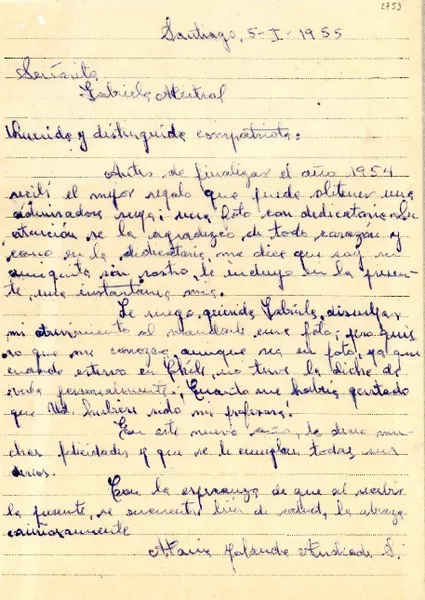 2753
Santiago, 5-I-1955
Señorita
Gabriela Mistral
Querida y distinguida compatriota:
Antes de finalizar el año 1954
recibí el mejor regalo que puede obtener una
admiradora suya: una foto con dedicatoria. Su
atención se la agradezco de todo corazón y
como en la dedicatoria me dice que soy su
amiguita sin rostro, le incluyo en la presen-
te, una instantánea mía.
Le ruego, querida Gabriela, disculpar
mi atrevimiento al mandarle una foto, pero quie
ro que me conozca aunque sea en foto, ya que
cuando estuvo en Chile, no tuve la dicha de
verla personalmente. ¡Cuánto me habría gustado
que Ud. hubiese sido mi profesora!
En este nuevo año, le deseo mu-
chas felicidades y que se le cumplan todos sus
deseos.
Con la esperanza de que al recibir
la presente, se encuentre bien de salud, la abraza
cariñosamente
María Yolanda Andrade S.